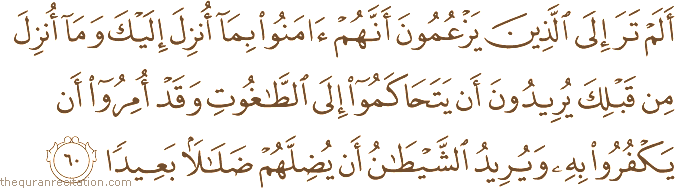 أَلَمْ تَرَ إِلَى ٱلَّذِينَ يَزْعُمُونَ أَنَّهُمْ ءَامَنُوا۟ بِمَآ أُنزِلَ إِلَيْكَ وَمَآ أُنزِلَ
مِن قَبْلِكَ يُرِيدُونَ أَن يَتَحَاكَمُوٓا۟ إِلَى ٱلطَّٰغُوتِ وَقَدْ أُمِرُوٓا۟ أَن
يَكْفُرُوا۟ بِهِۦ وَيُرِيدُ ٱلشَّيْطَٰنُ أَن يُضِلَّهُمْ ضَلَٰلًۢا بَعِيدًا ٦٠
thequranrecitation.com